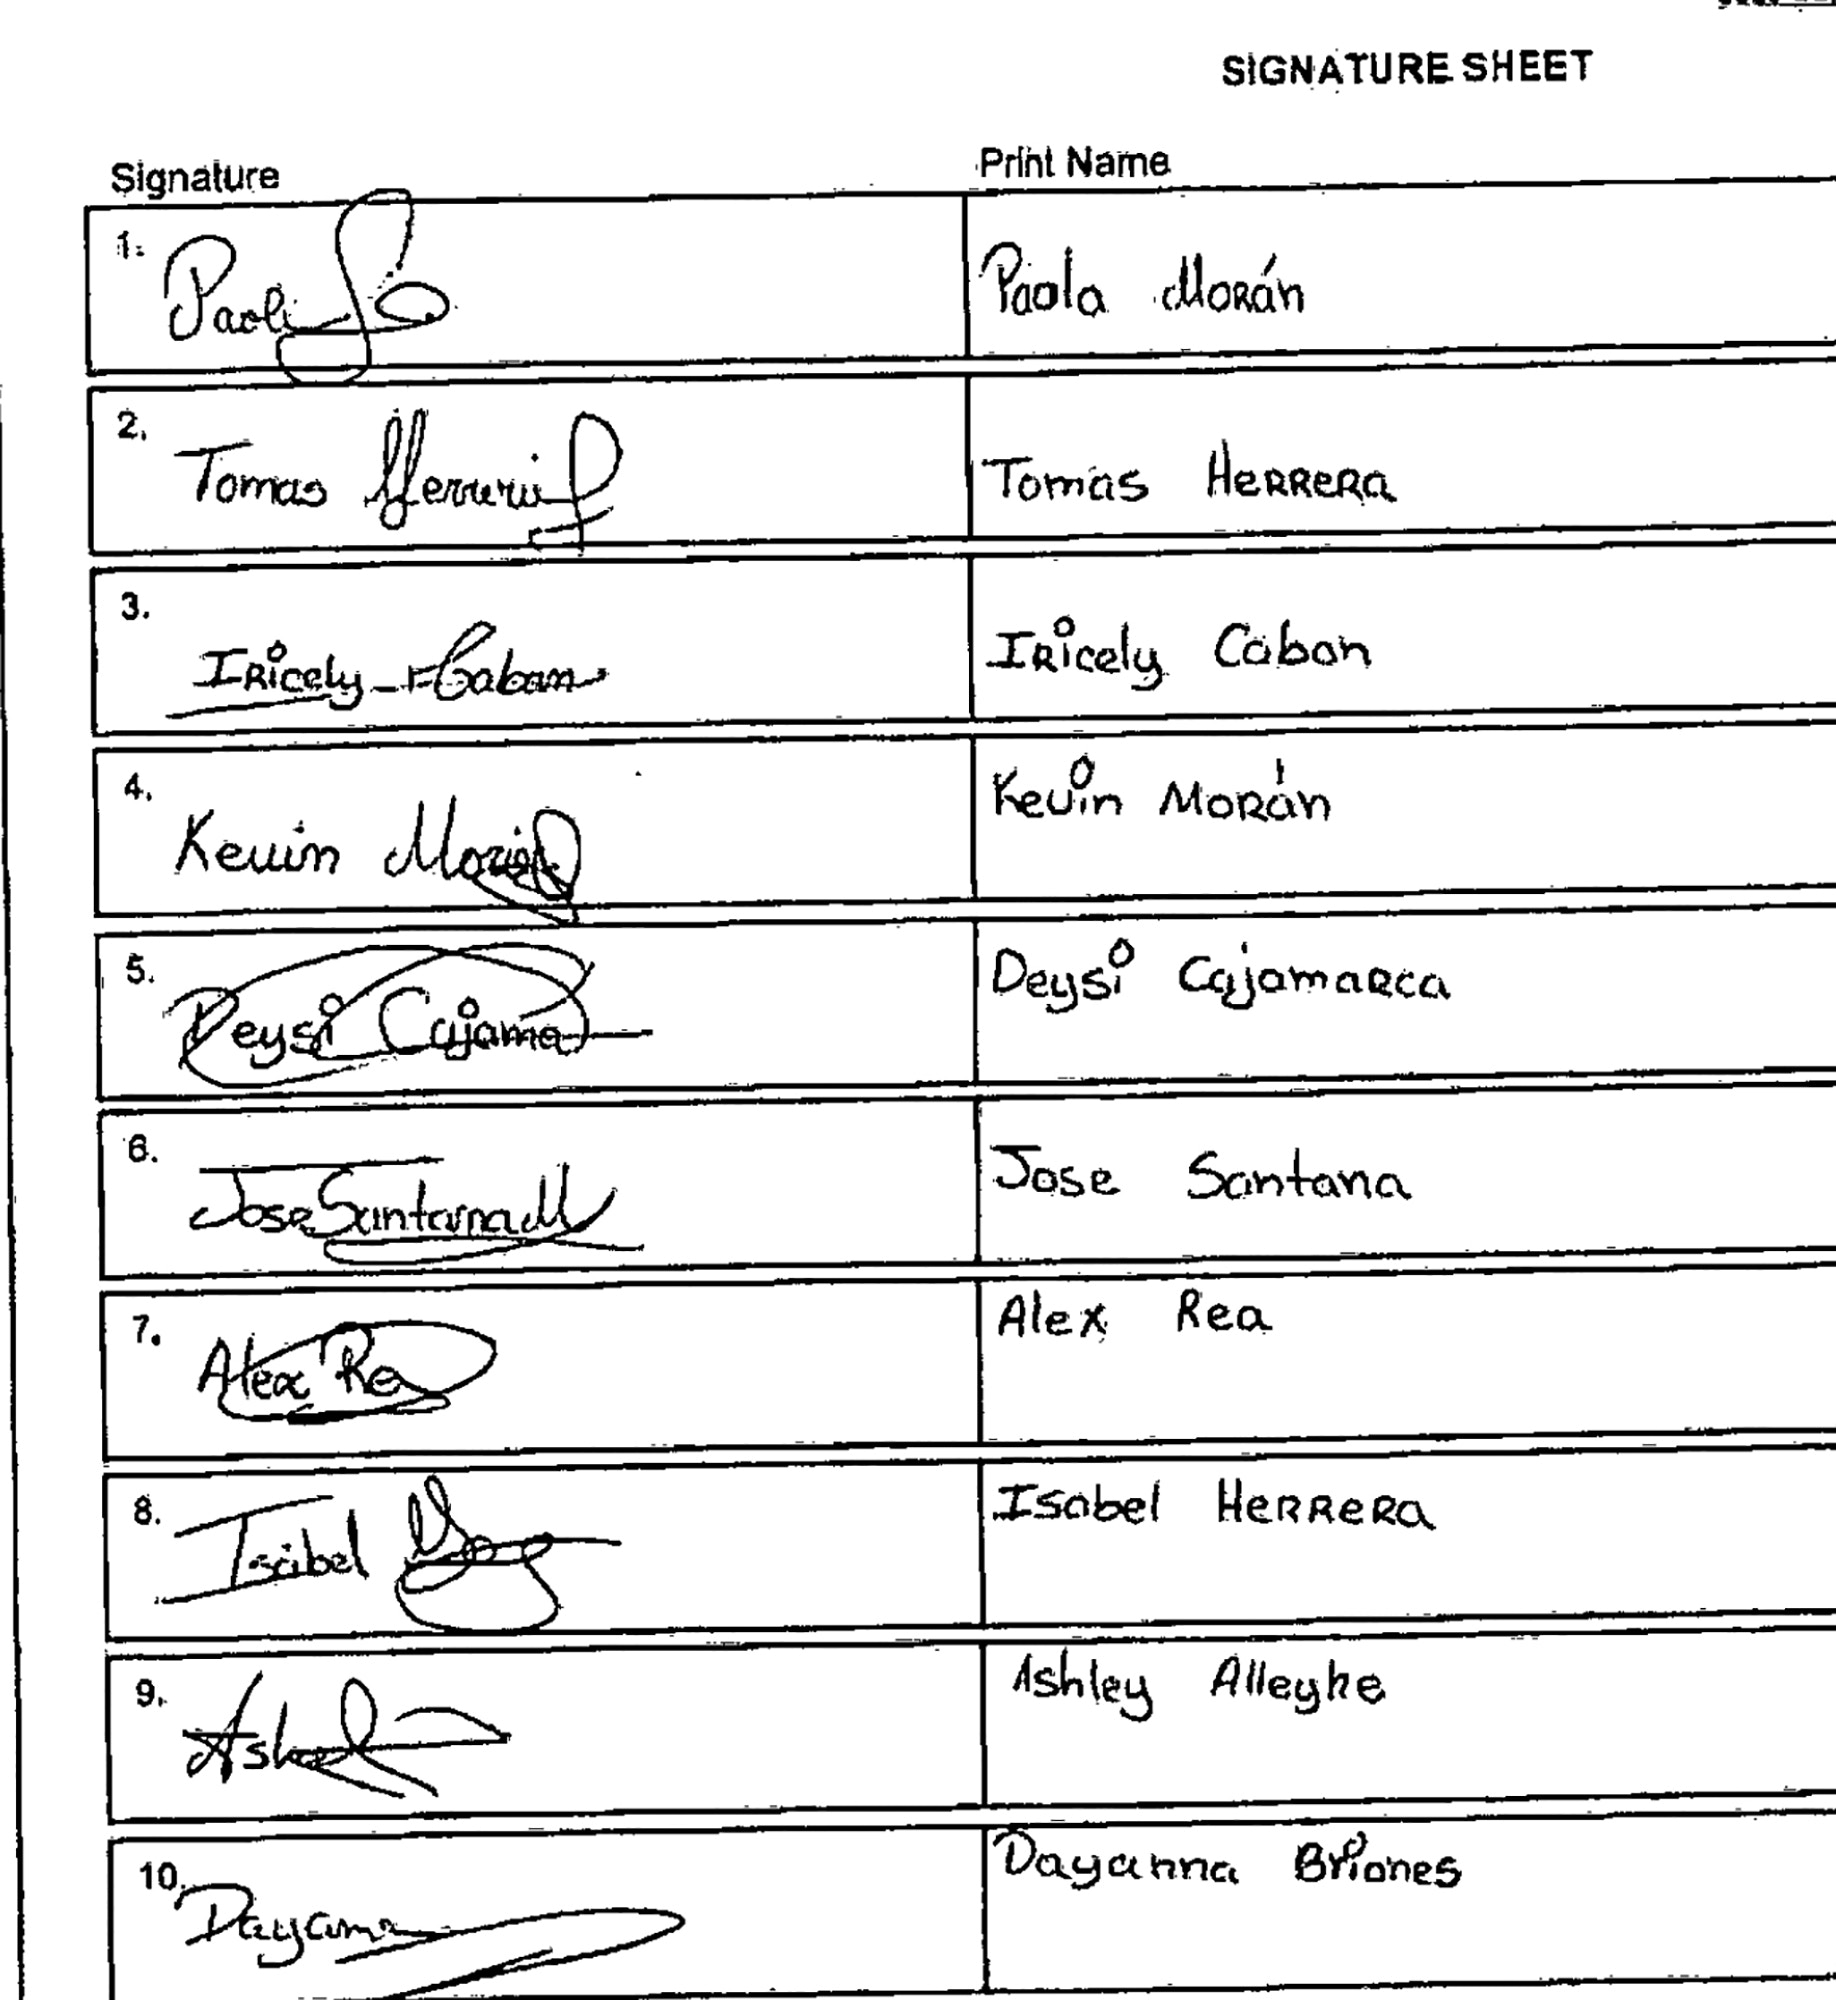 SIGNATURE SHEET
Signature Print Name
1. Paola Morán
2. Tomas Herrera Tomas HERRERA
3. IRicely Caban IRicely Caban
4. Kevin Moran Kevin MORán
5. Deysi Cajama Deysi CajamaRca
6. Jose Santana M Jose Santana
7. Alex Rea Alex Rea
8. Isabel Isabel HERRERA
9. Ashley Alleyne
10. Dayanna Dayanna Briones